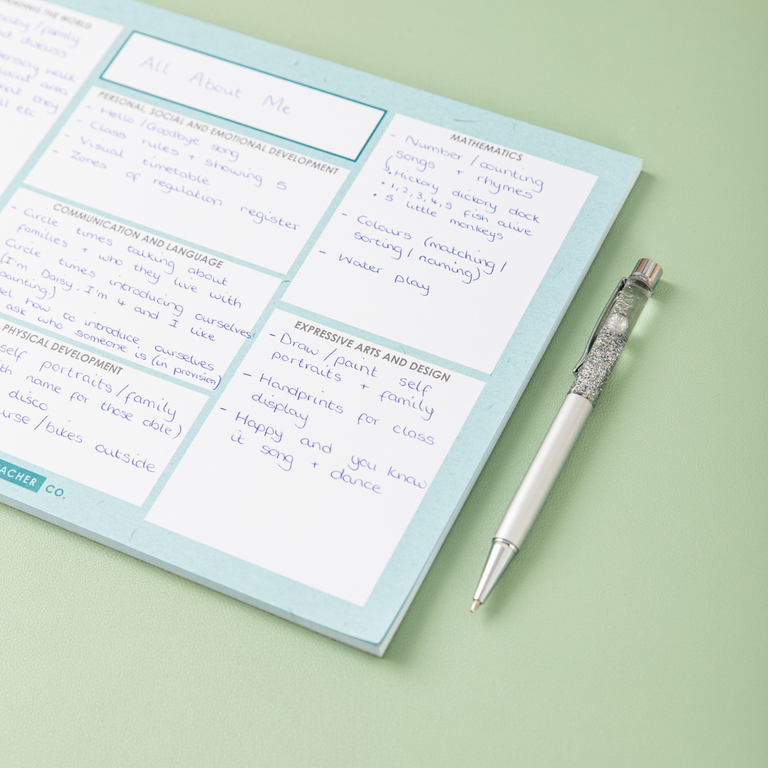 NDING THE WORLD
/family
discuss
sensory walk
local area
they
etc
All About Me
PERSONAL, SOCIAL AND EMOTIONAL DEVELOPMENT
- Hello / Goodbye song
- Class rules + showing 5
- Visual timetable
- Zones of regulation register
COMMUNICATION AND LANGUAGE
- Circle times talking about
families + who they live with
Circle times introducing ourselves
(I'm Daisy, I'm 4 and I like
painting)
how to introduce ourselves
ask who someone is (in provision)
PHYSICAL DEVELOPMENT
self portraits / family
name for those able)
disco
/ bikes outside
ACHER CO.
MATHEMATICS
- Number / counting
songs + rhymes
(* Hickory dickory dock
* 1, 2, 3, 4, 5 fish alive
* 5 little monkeys
- Colours (matching /
sorting / naming)
- Water play
EXPRESSIVE ARTS AND DESIGN
- Draw / paint self
portraits + family
- Handprints for class
display
- Happy and you know
it song + dance